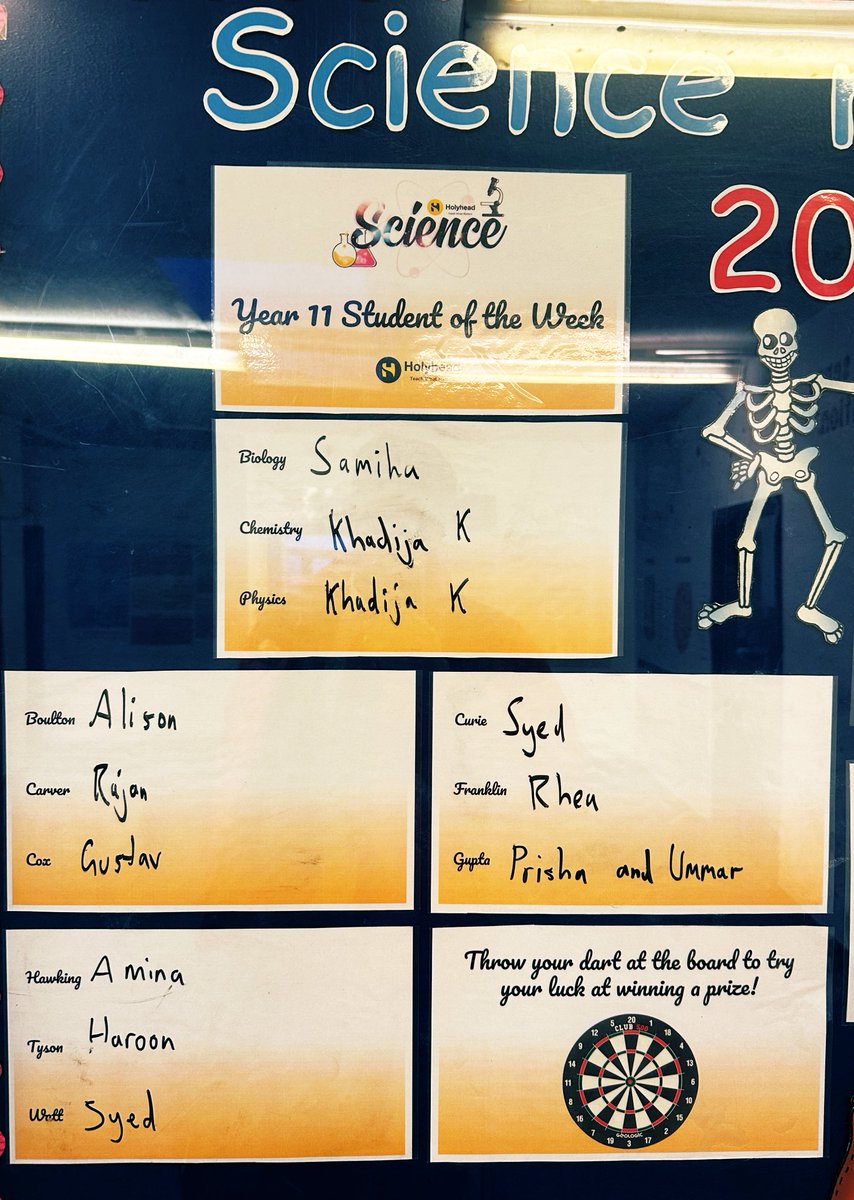 Science
20
Holyhead
Science
Year 11 Student of the Week
Holyhead
Biology Samiha
Chemistry Khadija K
Physics Khadija K
Boulton Alison
Carver Rajan
Cox Gustav
Curie Syed
Franklin Rhea
Gupta Prisha and Ummar
Hawking Amina
Tyson Haroon
Watt Syed
Throw your dart at the board to try
your luck at winning a prize!
20 1 18 4 13 6 10 15 2 17 3 19 7 16 8 11 14 9 12 5
CLUB 500
GEOLOGIC